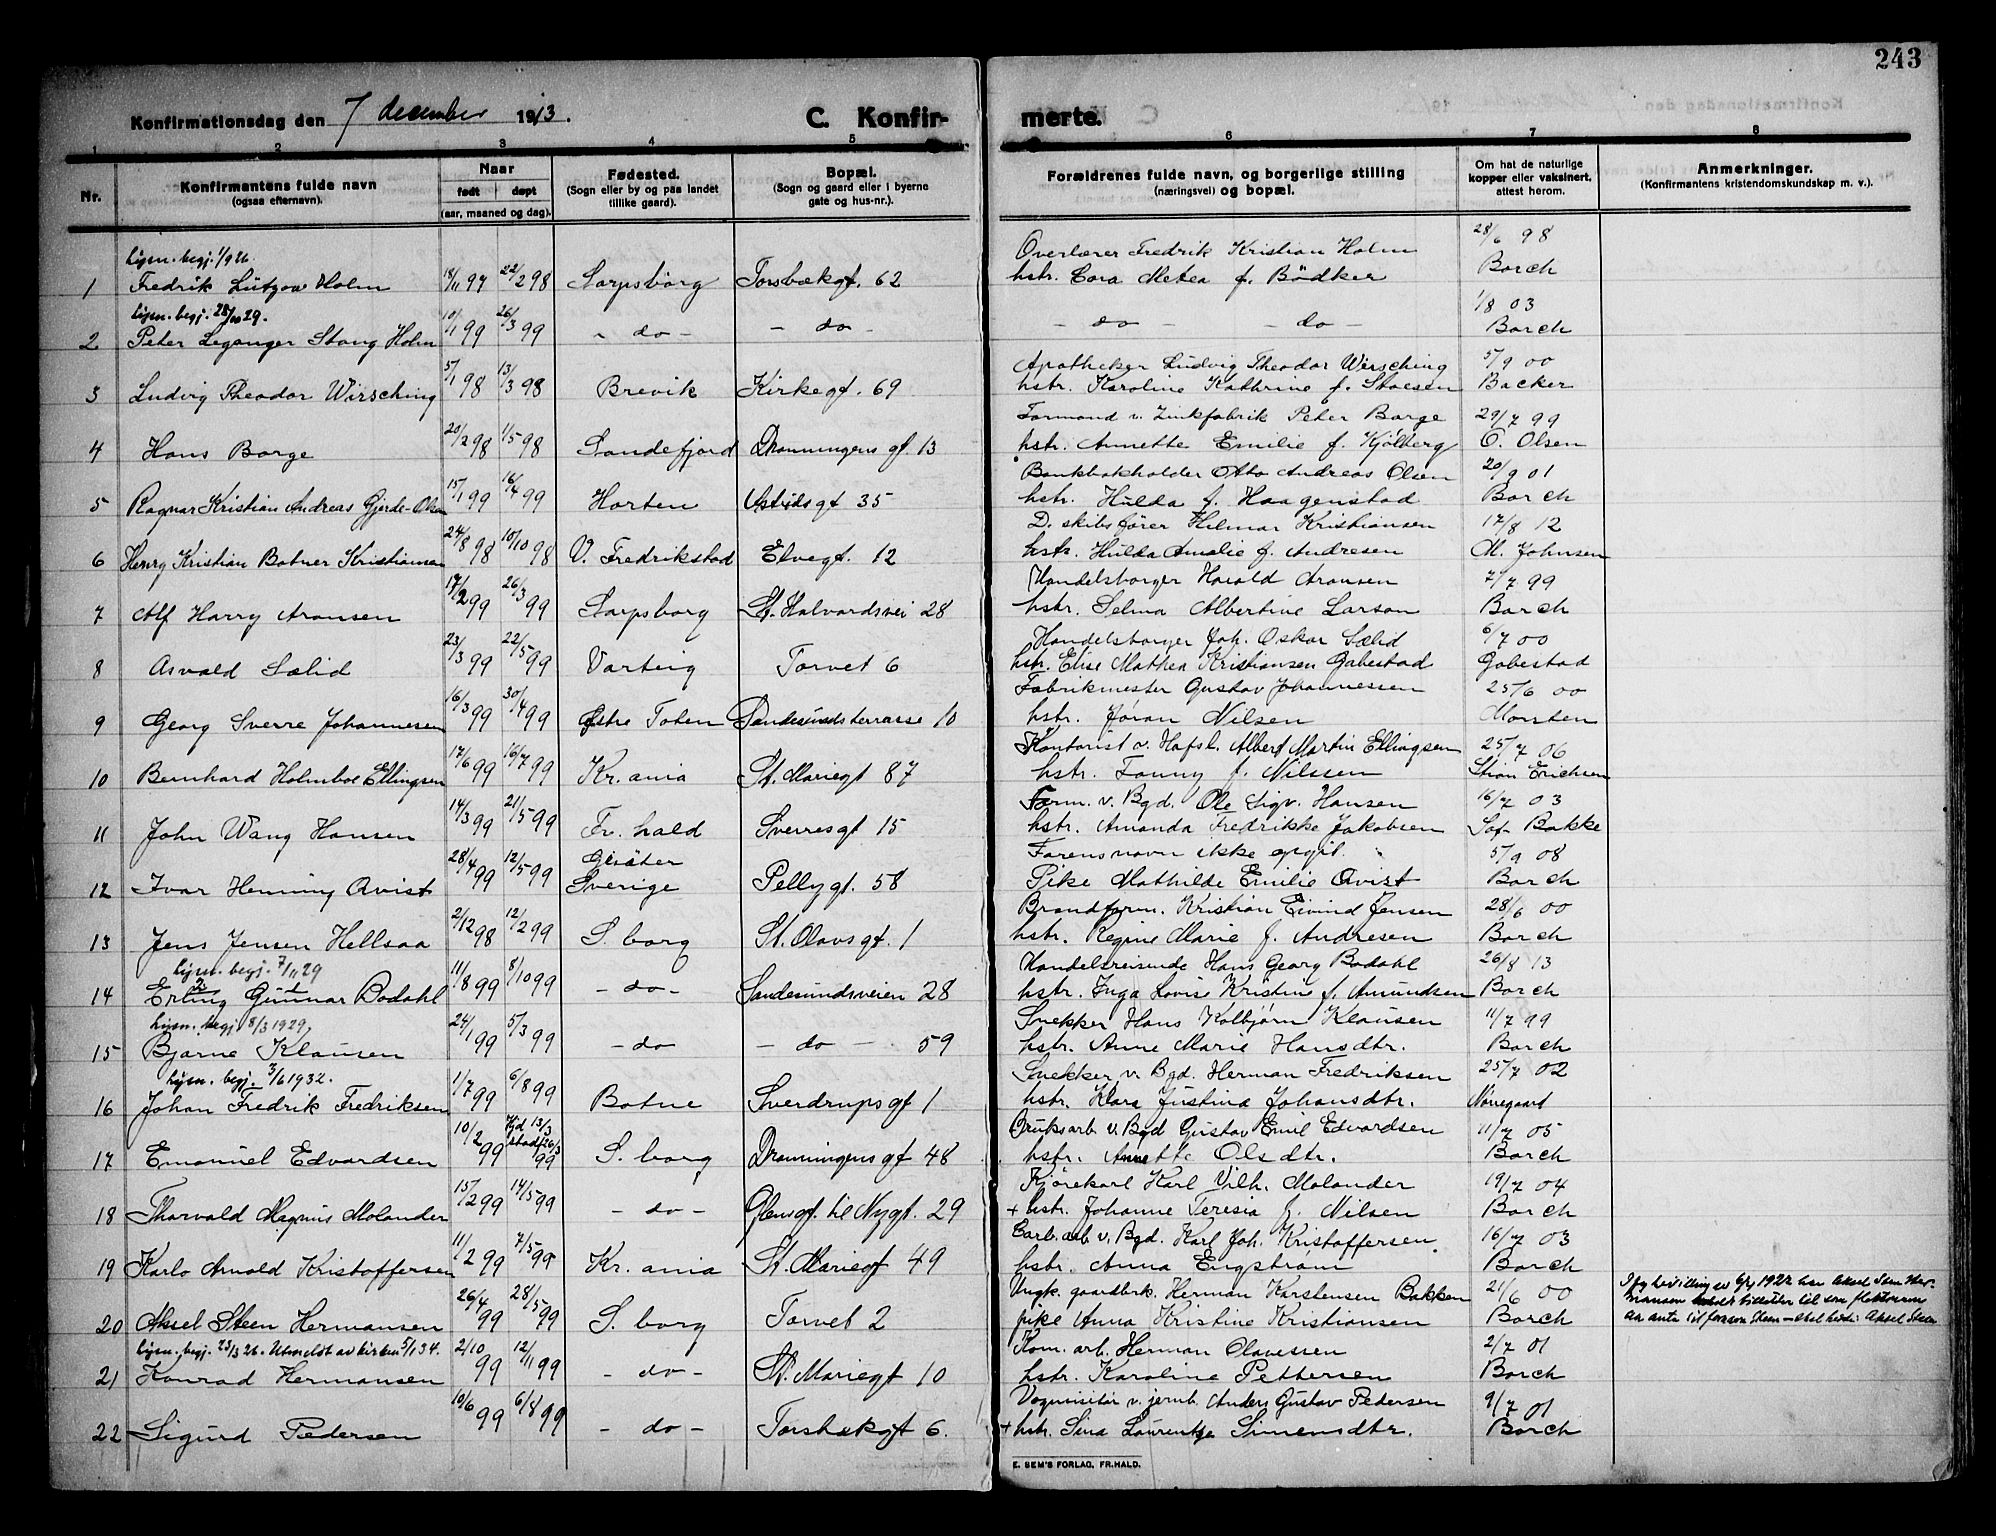 243
Konfirmationsdag den 7 december 1913.
C. Konfirmerte.
1 2 3 4 5 6 7 8
Nr.
Konfirmantens fulde navn
(ogsaa efternavn).
Naar
født døpt
(aar, maaned og dag).
Fødested.
(Sogn eller by og paa landet
tillike gaard).
Bopæl.
(Sogn og gaard eller i byerne
gate og hus-nr.).
Forældrenes fulde navn, og borgerlige stilling
(næringsvei) og bopæl.
Om hat de naturlige
kopper eller vaksinert,
attest herom.
Anmerkninger.
(Konfirmantens kristendomskundskap m. v.).
Lysn. begj. 1/9 26. Overlærer Fredrik Kristian Holm 28/6 98
1 Fredrik Lützow Holm 18/11 97 22/2 98 Sarpsborg Torsbækgt. 62 hstr. Cora Metea f. Bödker Borch
Lysn. begj. 28/10 29. 1/8 03
2 Peter Leganger Stang Holm 10/1 99 26/3 99 - do - - do - - do - - do - Borch
Apotheker Ludvig Theodor Wirsching 5/9 00
3 Ludvig Theodor Wirsching 5/1 98 13/3 98 Brevik Kirkegt. 69 hstr. Karoline Kathrine f. Stoesen Backer
Formand v. Zinkfabrik Peter Borge 29/7 99
4 Hans Borge 20/2 98 1/5 98 Sandefjord Dronningens gt. 13 hstr. Annette Emilie f. Kjölberg O. Olsen
Bankbokholder Otto Andreas Olsen 20/9 01
5 Ragnar Kristian Andreas Gjerde-Olsen 15/1 99 16/4 99 Horten Astridsgt 35 hstr. Hulda f. Haagenstad Borch
D. skibsfører Hilmar Kristiansen 17/8 12
6 Henry Kristian Botner Kristiansen 24/8 98 10/10 98 V. Fredrikstad Elvegt. 12 hstr. Hulda Amalie f. Andresen M. Johnsen
Handelsborger Harald Aronsen 7/7 99
7 Alf Harry Aronsen 17/2 99 26/3 99 Sarpsborg St. Halvardsvei 28 hstr. Selma Albertine Larson Borch
Handelsborger Joh. Oskar Sælid 6/7 00
8 Asvald Sælid 23/3 99 22/5 99 Varteig Torvet 6 hstr. Elise Mathea Kristiansen Gabestad Gabestad
Fabrikmester Gustav Johannessen 25/6 00
9 Georg Sverre Johannesen 16/3 99 30/4 99 Østre Toten Sandesundsterrasse 10 hstr. Jöran Nilsen Monten
Kontorist v. Hafsl. Albert Martin Ellingsen 25/7 06
10 Bernhard Holmboe Ellingsen 17/6 99 16/7 99 Kr.ania St. Mariegt 87 hstr. Fanny f. Nilssen Stian Erichsen
Form. v. Bgd. Ole Sigv. Hansen 16/7 03
11 John Wang Hansen 14/3 99 21/5 99 Fr. hald Sverresgt 15 hstr. Amanda Fredrikke Jakobsen Sof. Bakke
Farens navn ikke opgit. 5/9 08
12 Ivar Henning Qvist 28/4 99 12/5 99 Sverige Pellygt. 58 Pike Mathilde Emilie Qvist Borch
Brandform. Kristian Eivind Jensen 28/6 00
13 Jens Jensen Hellsaa 2/12 98 12/2 99 S. borg St. Olavsgt. 1 hstr. Regine Marie f. Andresen Borch
Lysn. begj. 7/11 29 Handelsreisende Hans Georg Bodahl 26/8 13
14 Erling Gunnar Bodahl 11/8 99 8/10 99 - do - Sandesundsveien 28 hstr. Inga Lovise Kristine f. Amundsen Borch
Lysn. begj 8/3 1929, Snekker Hans Kolbjørn Klausen 11/7 99
15 Bjarne Klausen 24/1 99 5/3 99 - do - - do - 59 hstr. Anne Marie Hansdtr. Borch
Lysn. begj. 3/6 1932. Snekker v. Bgd. Herman Fredriksen 25/7 02
16 Johan Fredrik Fredriksen 1/7 99 6/8 99 Botne Sverdrupsgt 1 hstr. Klara Justina Johansdtr. Nörregaard
Bruksarb v. Bgd Gustav Emil Edvardsen 11/7 05
17 Emanuel Edvardsen 10/2 99 Hjd 13/3 stadf. 26/3 99 S. borg Dronningens gt 48 hstr. Annette Olsdtr. Borch
Kjörekarl Karl Vilh. Molander 19/7 04
18 Thorvald Magnus Molander 15/2 99 14/5 99 - do - Glensgt. til Nygt. 29 + hstr. Johanne Teresia f. Nilsen Borch
Carb. arb v. Bgd. Karl Joh. Kristoffersen 16/7 03
19 Karlo Arnold Kristoffersen 11/2 99 7/5 99 Kr. ania St. Mariegt 49 hstr. Anna Engström Borch
Ungk. gaardbrk. Herman Karstensen Bakken 21/6 00
20 Aksel Steen Hermansen 26/4 99 28/5 99 S. borg Torvet 2 pike Anna Kristine Kristiansen Borch
Ifg bevilling av 6/4 1922 har Aksel Steen Her-
mansen tillatelse til som
aa anta til fornavn Steen - skal hete: Aksel Steen
Lysn. begj. 23/3 26. Utmeldt av kirken 5/1 34. Kom. arb. Herman Olavessen 2/7 01
21 Konrad Hermansen 2/10 99 12/11 99 - do - St. Mariegt 10 hstr. Karoline Pettersen Borch
Vognvisitør v. jernb. Anders Gustav Pedersen 9/7 01
22 Sigurd Pedersen 10/6 99 6/8 99 - do - Torsbækgt 6. + hstr. Sina Laurentze Simensdtr. Borch
E. SEM'S FORLAG, FR.HALD.